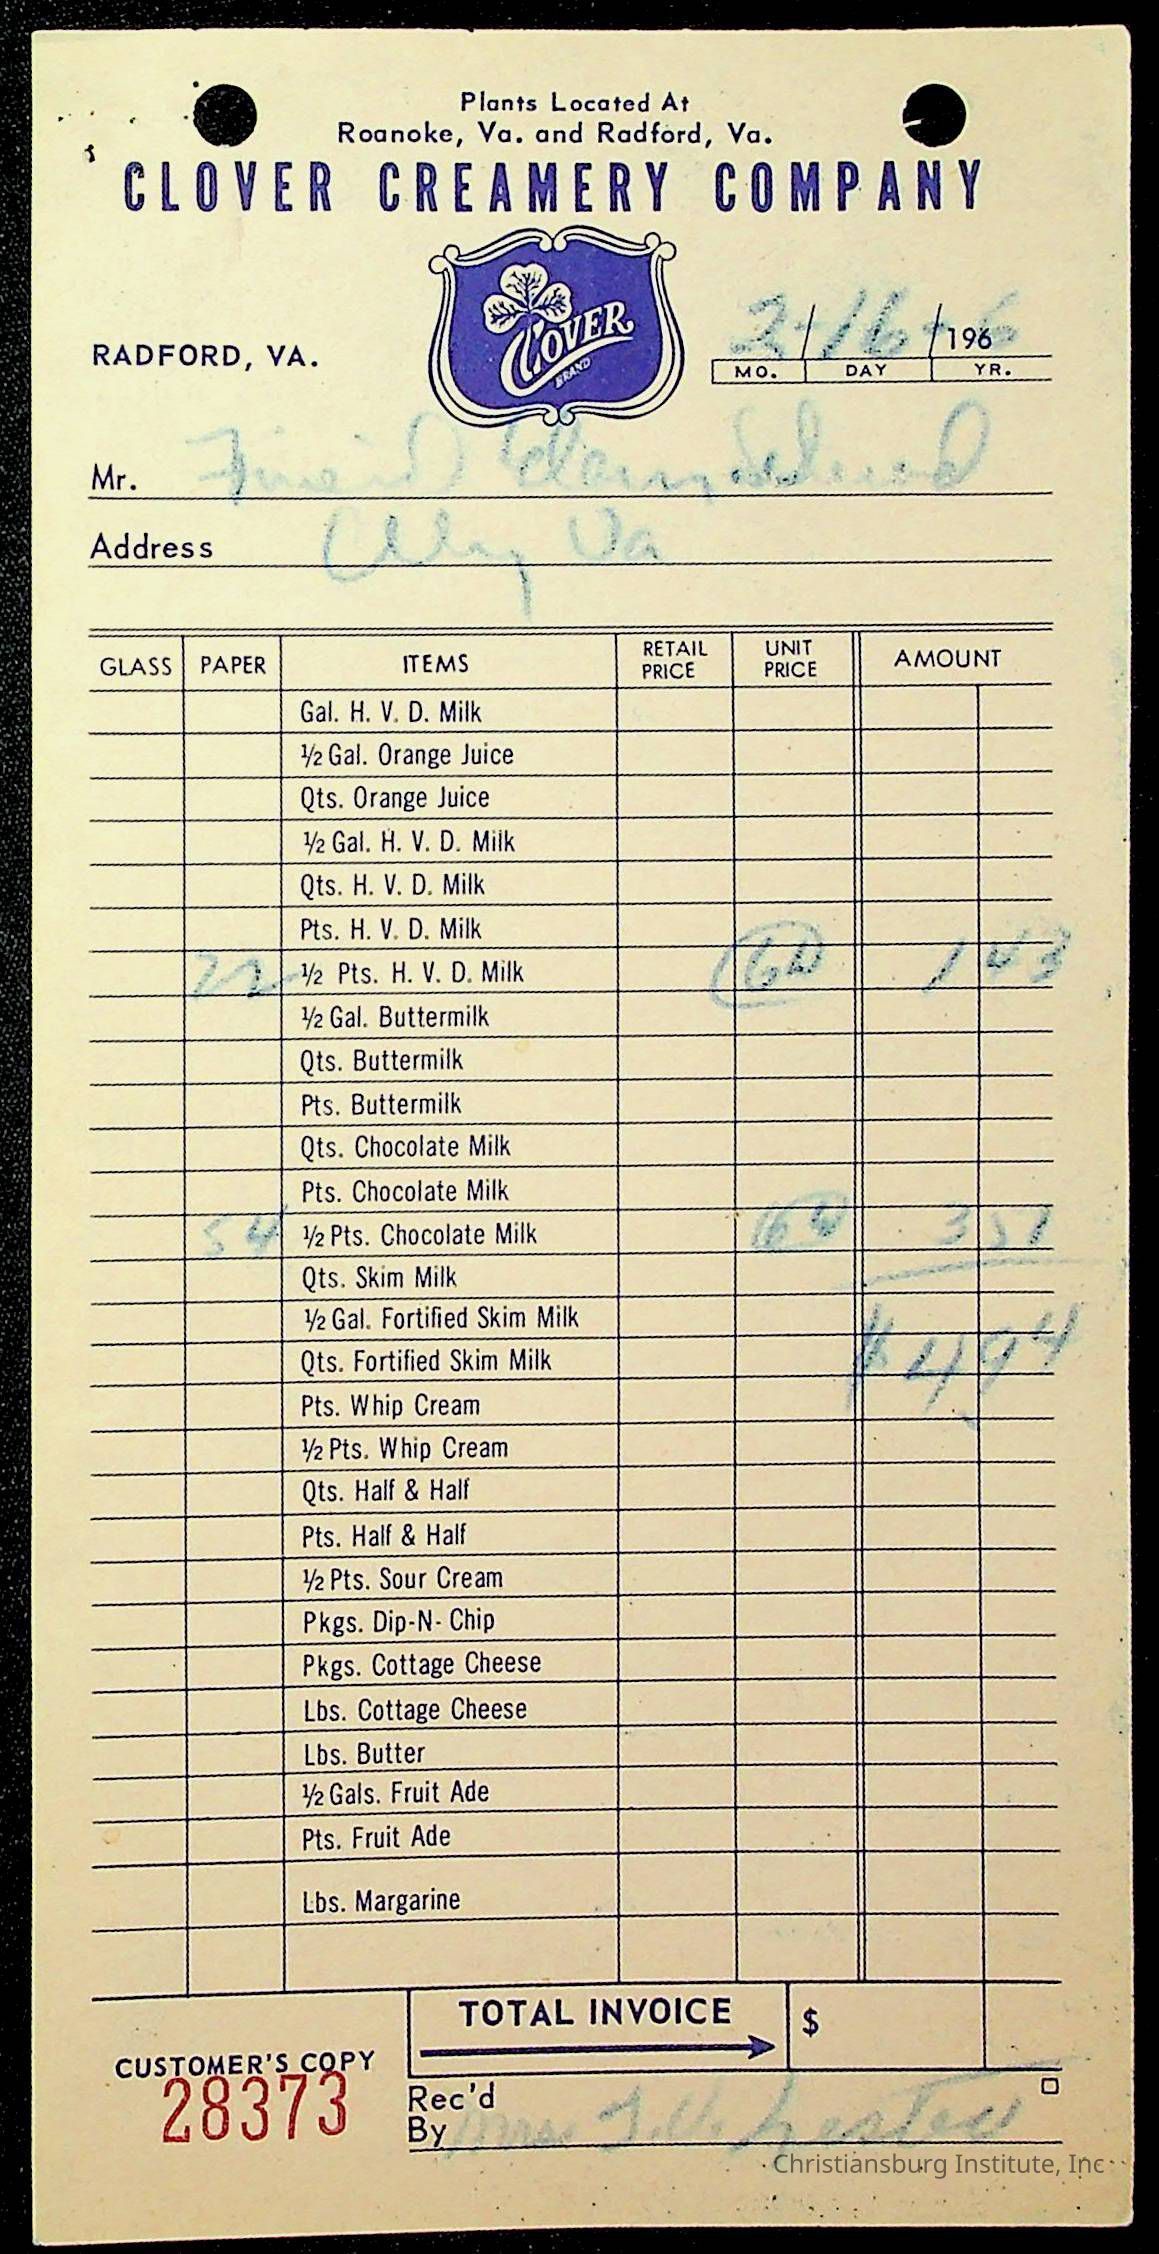 Plants Located At
Roanoke, Va. and Radford, Va.
CLOVER CREAMERY COMPANY
CLOVER
BRAND
RADFORD, VA.
2-16-6
196
MO. DAY YR.
Mr. Friend Elem School
Address Va
GLASS PAPER ITEMS RETAIL PRICE UNIT PRICE AMOUNT
Gal. H. V. D. Milk
½ Gal. Orange Juice
Qts. Orange Juice
½ Gal. H. V. D. Milk
Qts. H. V. D. Milk
Pts. H. V. D. Milk
22 ½ Pts. H. V. D. Milk 1 43
½ Gal. Buttermilk
Qts. Buttermilk
Pts. Buttermilk
Qts. Chocolate Milk
Pts. Chocolate Milk
54 ½ Pts. Chocolate Milk 3 51
Qts. Skim Milk
½ Gal. Fortified Skim Milk
Qts. Fortified Skim Milk $ 4 94
Pts. Whip Cream
½ Pts. Whip Cream
Qts. Half & Half
Pts. Half & Half
½ Pts. Sour Cream
Pkgs. Dip-N- Chip
Pkgs. Cottage Cheese
Lbs. Cottage Cheese
Lbs. Butter
½ Gals. Fruit Ade
Pts. Fruit Ade
Lbs. Margarine
TOTAL INVOICE $
CUSTOMER'S COPY
28373
Rec'd
By Mrs. Lester
Christiansburg Institute, Inc